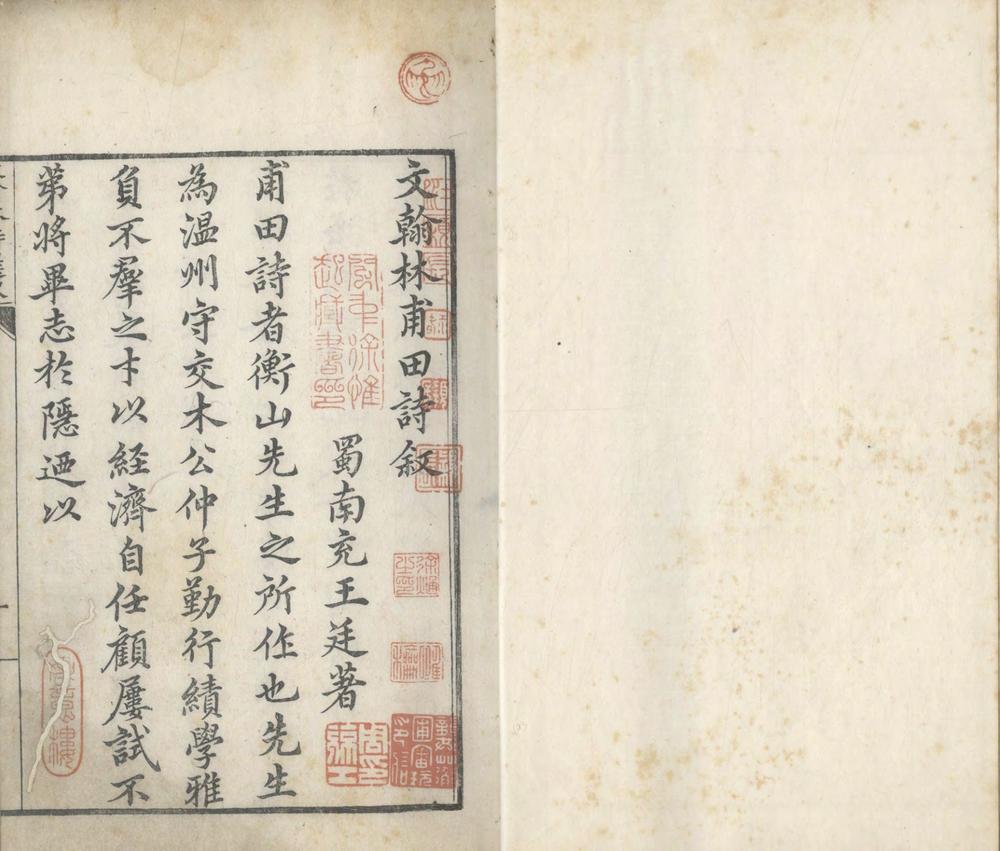 文翰林甫田詩叙
蜀南充王廷著
甫田詩者衡山先生之所作也先生
為温州守交木公仲子勤行績學雅
負不羣之才以経濟自任顧屢試不
苐將畢志於隱迺以
閩中徐惟
起藏書印